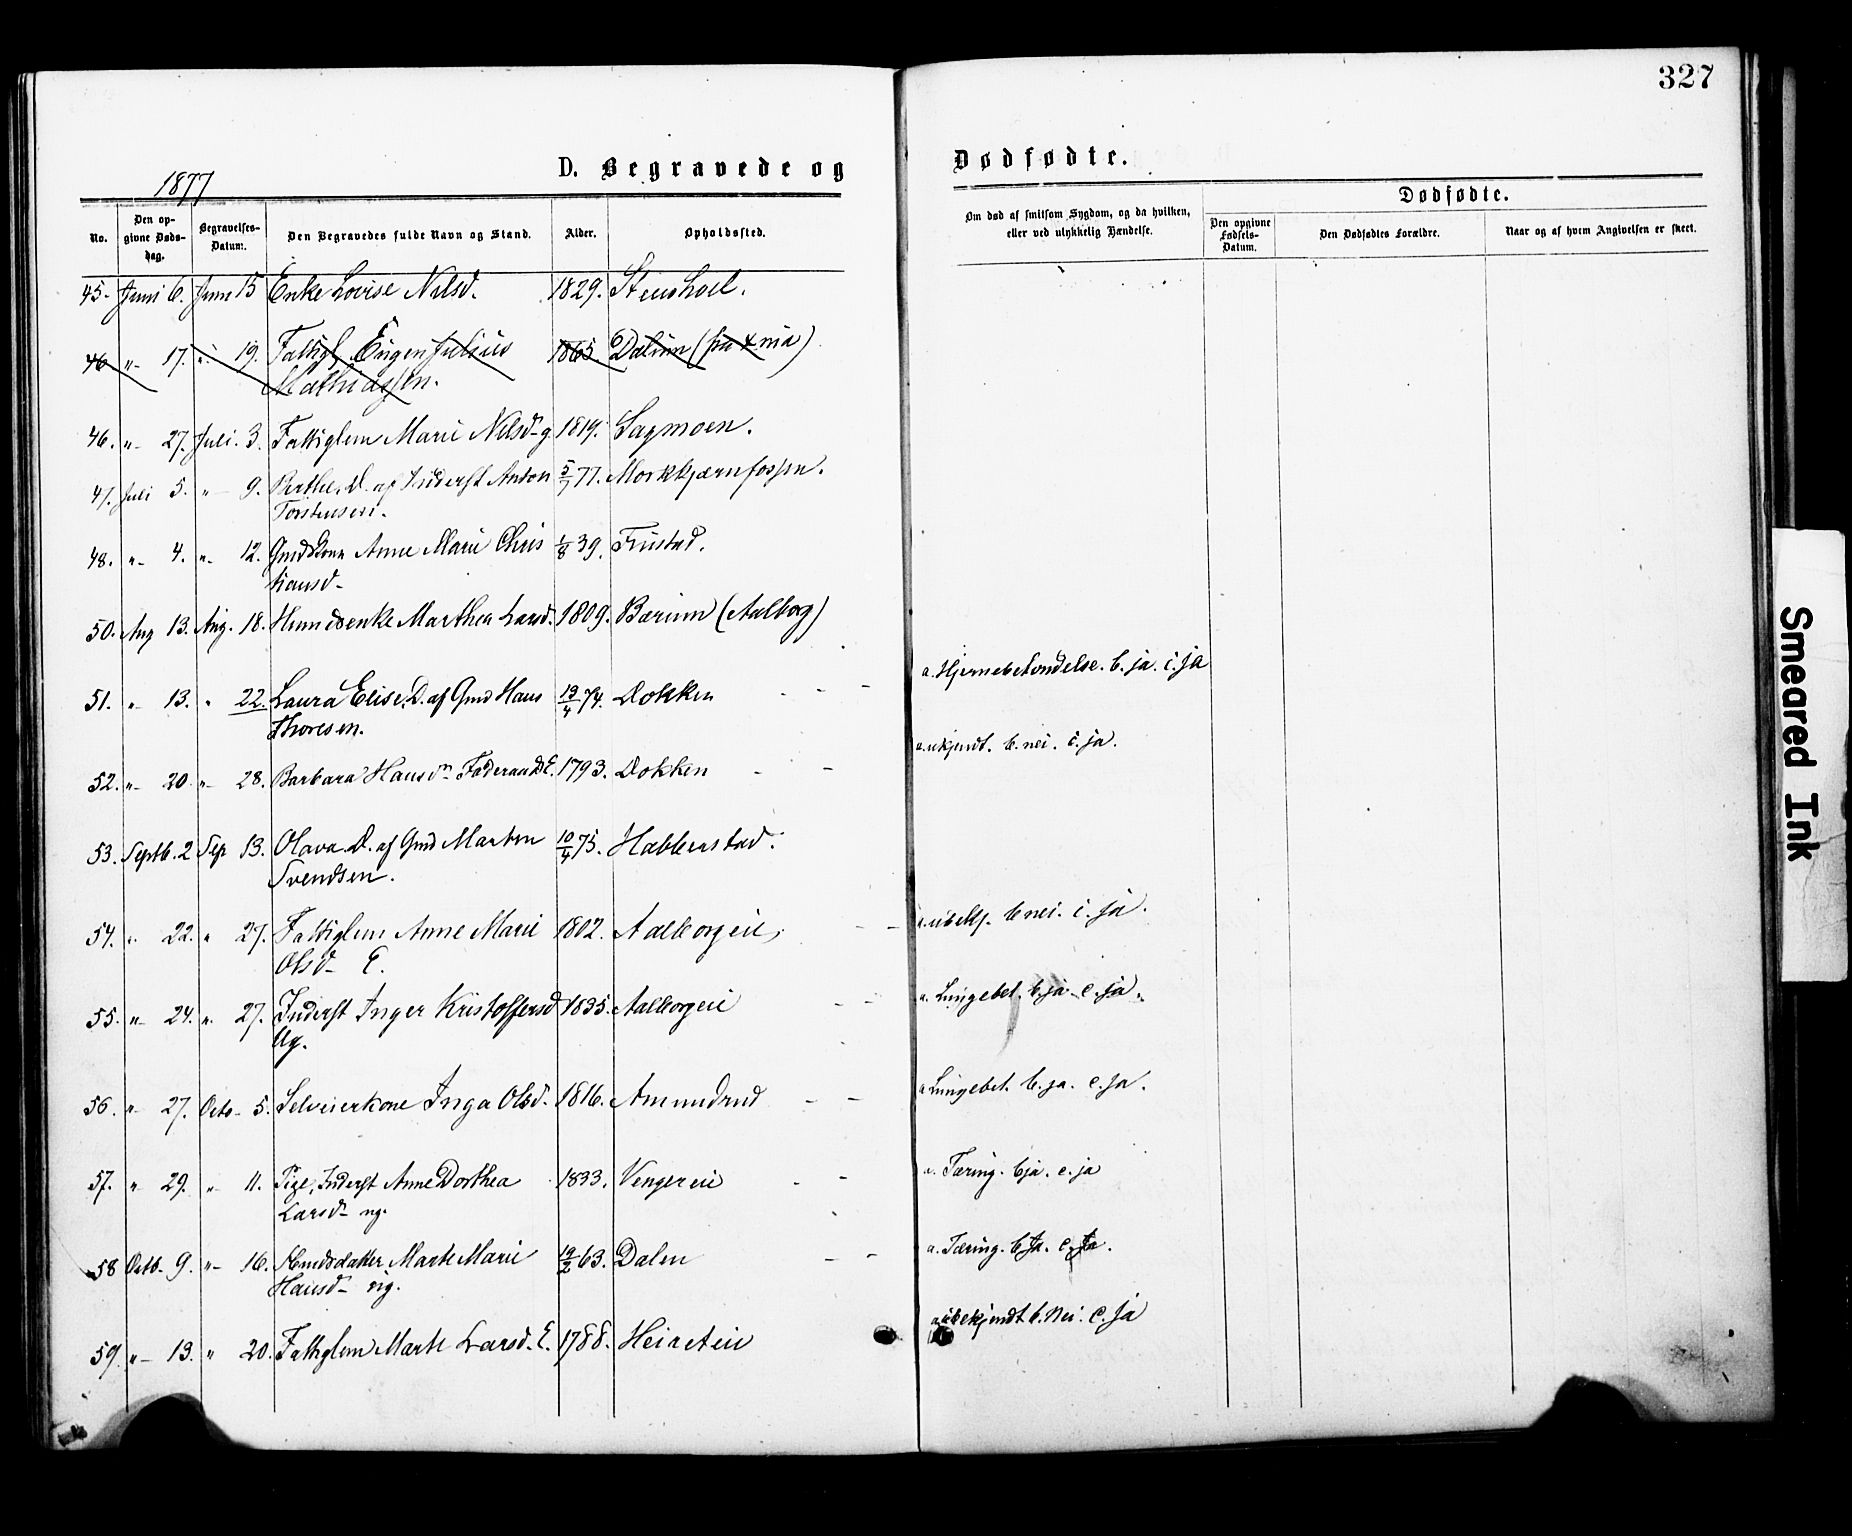 327
1877
D. Begravede og
Dødfødte.
Dødfødte.
No.
Den op-
givne Døds-
dag.
Begravelses-
Datum.
Den Begravedes fulde Navn og Stand.
Alder.
Opholdssted.
Om død af smitsom Sygdom, og da hvilken,
eller ved ulykkelig Hændelse.
Den opgivne
Fødsels-
Datum.
Den Dødfødtes Forældre.
Naar og af hvem Angivelsen er skeet.
45. Juni 6. Juni 15 Enke Lovise Nilsd. 1829. Stenshoel.
46 "- 17. " 19. Fattigl. Eugen Julius 1865. Dalum (fra Xnia)
Mathiassen.
46. "- 27. Juli. 3. Fattiglem Marie Nilsd- g. 1819. Sagmoen.
47. Juli 5. "- 9. Berthe, D. af Inderst Anton 5/7 77. Morkkjærnfossen.
Torstensen.
48. "- 4. "- 12. Gmdskone Anne Marie Chris 1/8 39. Frustad.
tiansd-
50. Aug 13. Aug. 18. Huusmdsenke Marthea Larsd. 1809. Bærum (Aalborg)
51. "- 13. " 22. Laura Elise, D. af Gmd Hans 19/4 74. Dokken - - - a. Hjernebetændelse. b. ja. c. ja
Thoresen.
52. "- 20 "- 28. Barbara Hansdn Føderaad E. 1793. Dokken - - a. ukjendt. b. nei. c. ja.
53. Septb. 2 Sep 13. Olava D. af Gmd Marten 10/4 75. Habberstad.
Svendsen.
54. " 22. " 27. Fattiglem Anne Marie 1802. Aalborgeie, - - a. ubekj. b nei. c. ja.
Olsd- E.
55. "- 24. ". 27. Inderst Inger Kristoffersd 1835. Aalborgeie - - a. Lungebet. b. ja. c. ja.
Ug.
56. "- 27. Octo- 5. Selveierkone Inga Olsd. 1816. Amundrud - - a Lungebet. b. ja. c. ja.
57. " 29. "- 11. Pige, Inderst Anne Dorthea 1833. Vengereie - - a. Tæring. b ja. c. ja
Larsd- ug.
58 Octb. 9. "- 16. Hmdsdatter Marte Marie 19/2 63. Dalen - - a. Tæring. b ja. c. ja.
Hansd- ug.
59 "- 13. " 20. Fattiglem Marte Larsd. E. 1788. Heieteie a ubekjendt b. Nei. c. ja
Smeared Ink